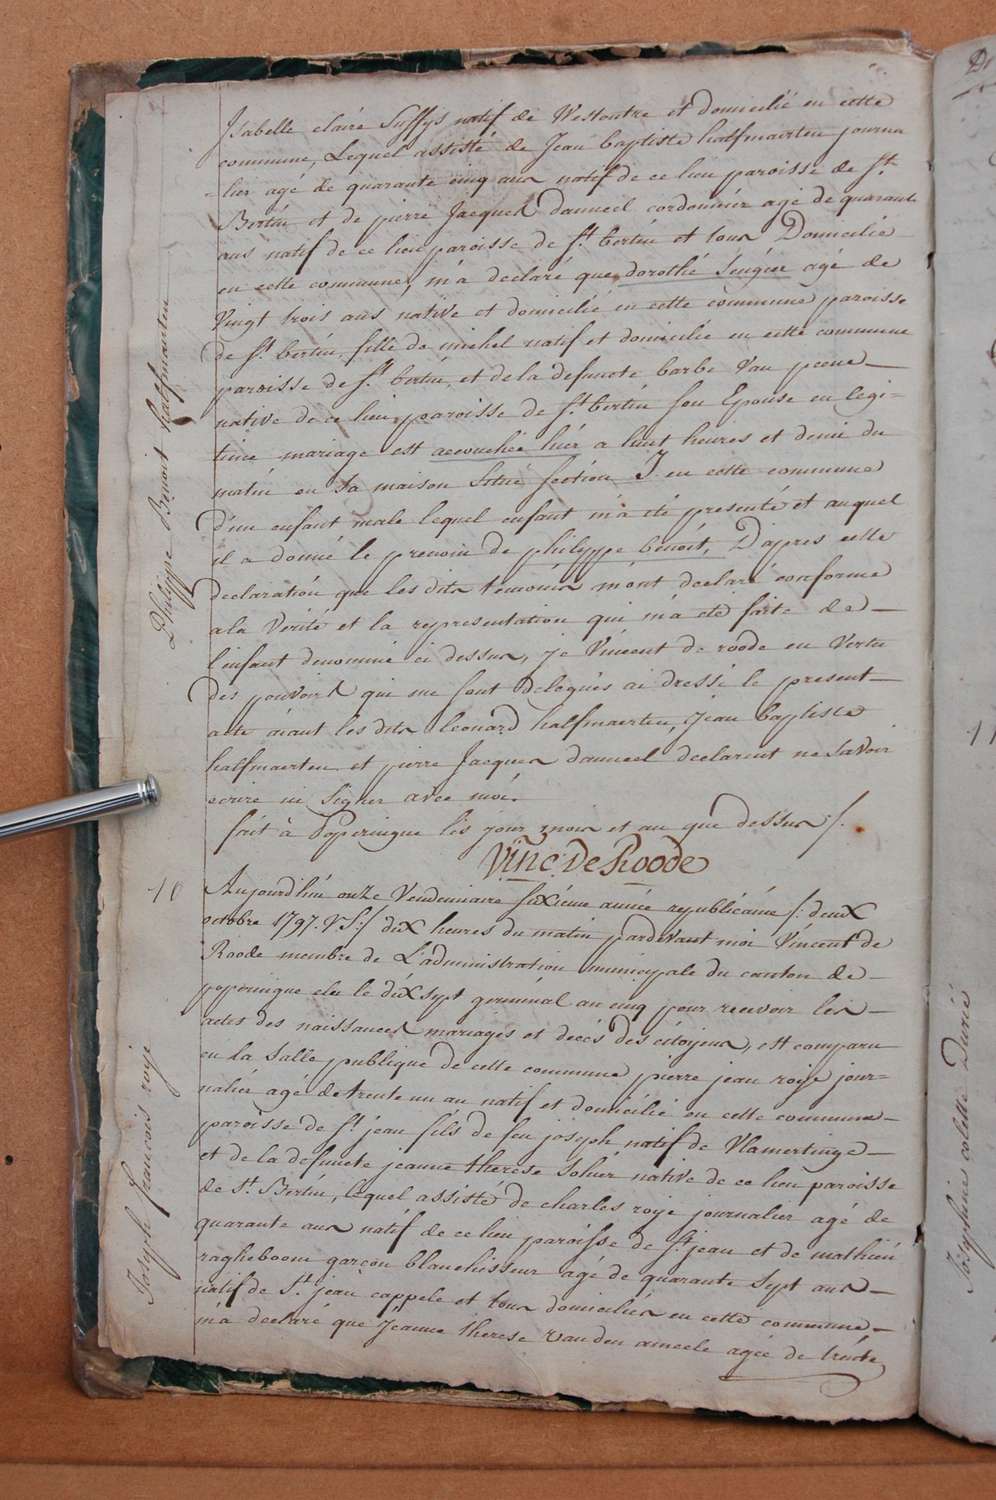 Isabelle claire Suffys natif de Westoutre et domicilié en cette
commune, Lequel assisté de Jean baptiste halfmaerten journa
-lier agé de quarante cinq ans natif de ce lieu paroisse de St.
Bertin et de pierre Jacques danneel cordonnier agé de quarante
ans natif de ce lieu paroisse de St. bertin et tous Domicilié
en cette commune, m'a declaré que dorothé agé de
Vingt trois ans native et domicilié en cette commune paroisse
de St. bertin, fille de michel natif et domicilié en cette commune
paroisse de St. bertin, et de la defuncte barbe Van peene —
native de ce lieu paroisse de St. bertin son Epouse en legi=
time mariage est accouchée hier a huit heures et demi du
matin en sa maison Situé section J en cette commune
d'un enfant male lequel enfant m'a été presenté et auquel
il a donné le prenom de philippe benoit, D'apres cette
declaration que les dits temoins m'ont declaré conforme
a la Verité et la representation qui m'a été faite de —
l'enfant denommé ci dessus, je Vincent de roode en Vertu
des pouvoirs qui me sont delegués ai dressé le present —
acte aiant les dits leonard halfmaerten, Jean baptiste
halfmaerten et pierre Jacques danneel declarent ne Savoir
ecrire ni Signer avec moi.
fait à Poperingue les jour mois et an que dessus /.
Vinc. De Roode
Philippe Benoit halfmaerten
10
Aujourd'hui onze Vendemiaire sixième année republicaine /: deux
octobre 1797. VS:/ dix heures du matin pardevant moi Vincent de
Roode membre de L'administration municipale du canton de —
poperingue elu le dix sept germinal an cinq pour recevoir les —
actes des naissances mariages et décés des citoyens, est comparu
en la Salle publique de cette commune pierre jean roije jour=
nalier agé de trente un an natif et domicilié en cette commune —
paroisse de St. jean fils de feu joseph natif de Vlamertinge —
et de la defuncte jeanne therese Sohier native de ce lieu paroisse
de St. Bertin, lequel assisté de charles roije journalier agé de
quarante ans natif de ce lieu paroisse de St. jean et de mathieu
ragheboom garçon blanchisseur agé de quarante Sept ans —
natif de St. jean cappele et tous domiciliés en cette commune —
m'a declaré que Jeanne therese vanden ameele agée de trente
Joseph francois roije
Josephine colette Durié
11